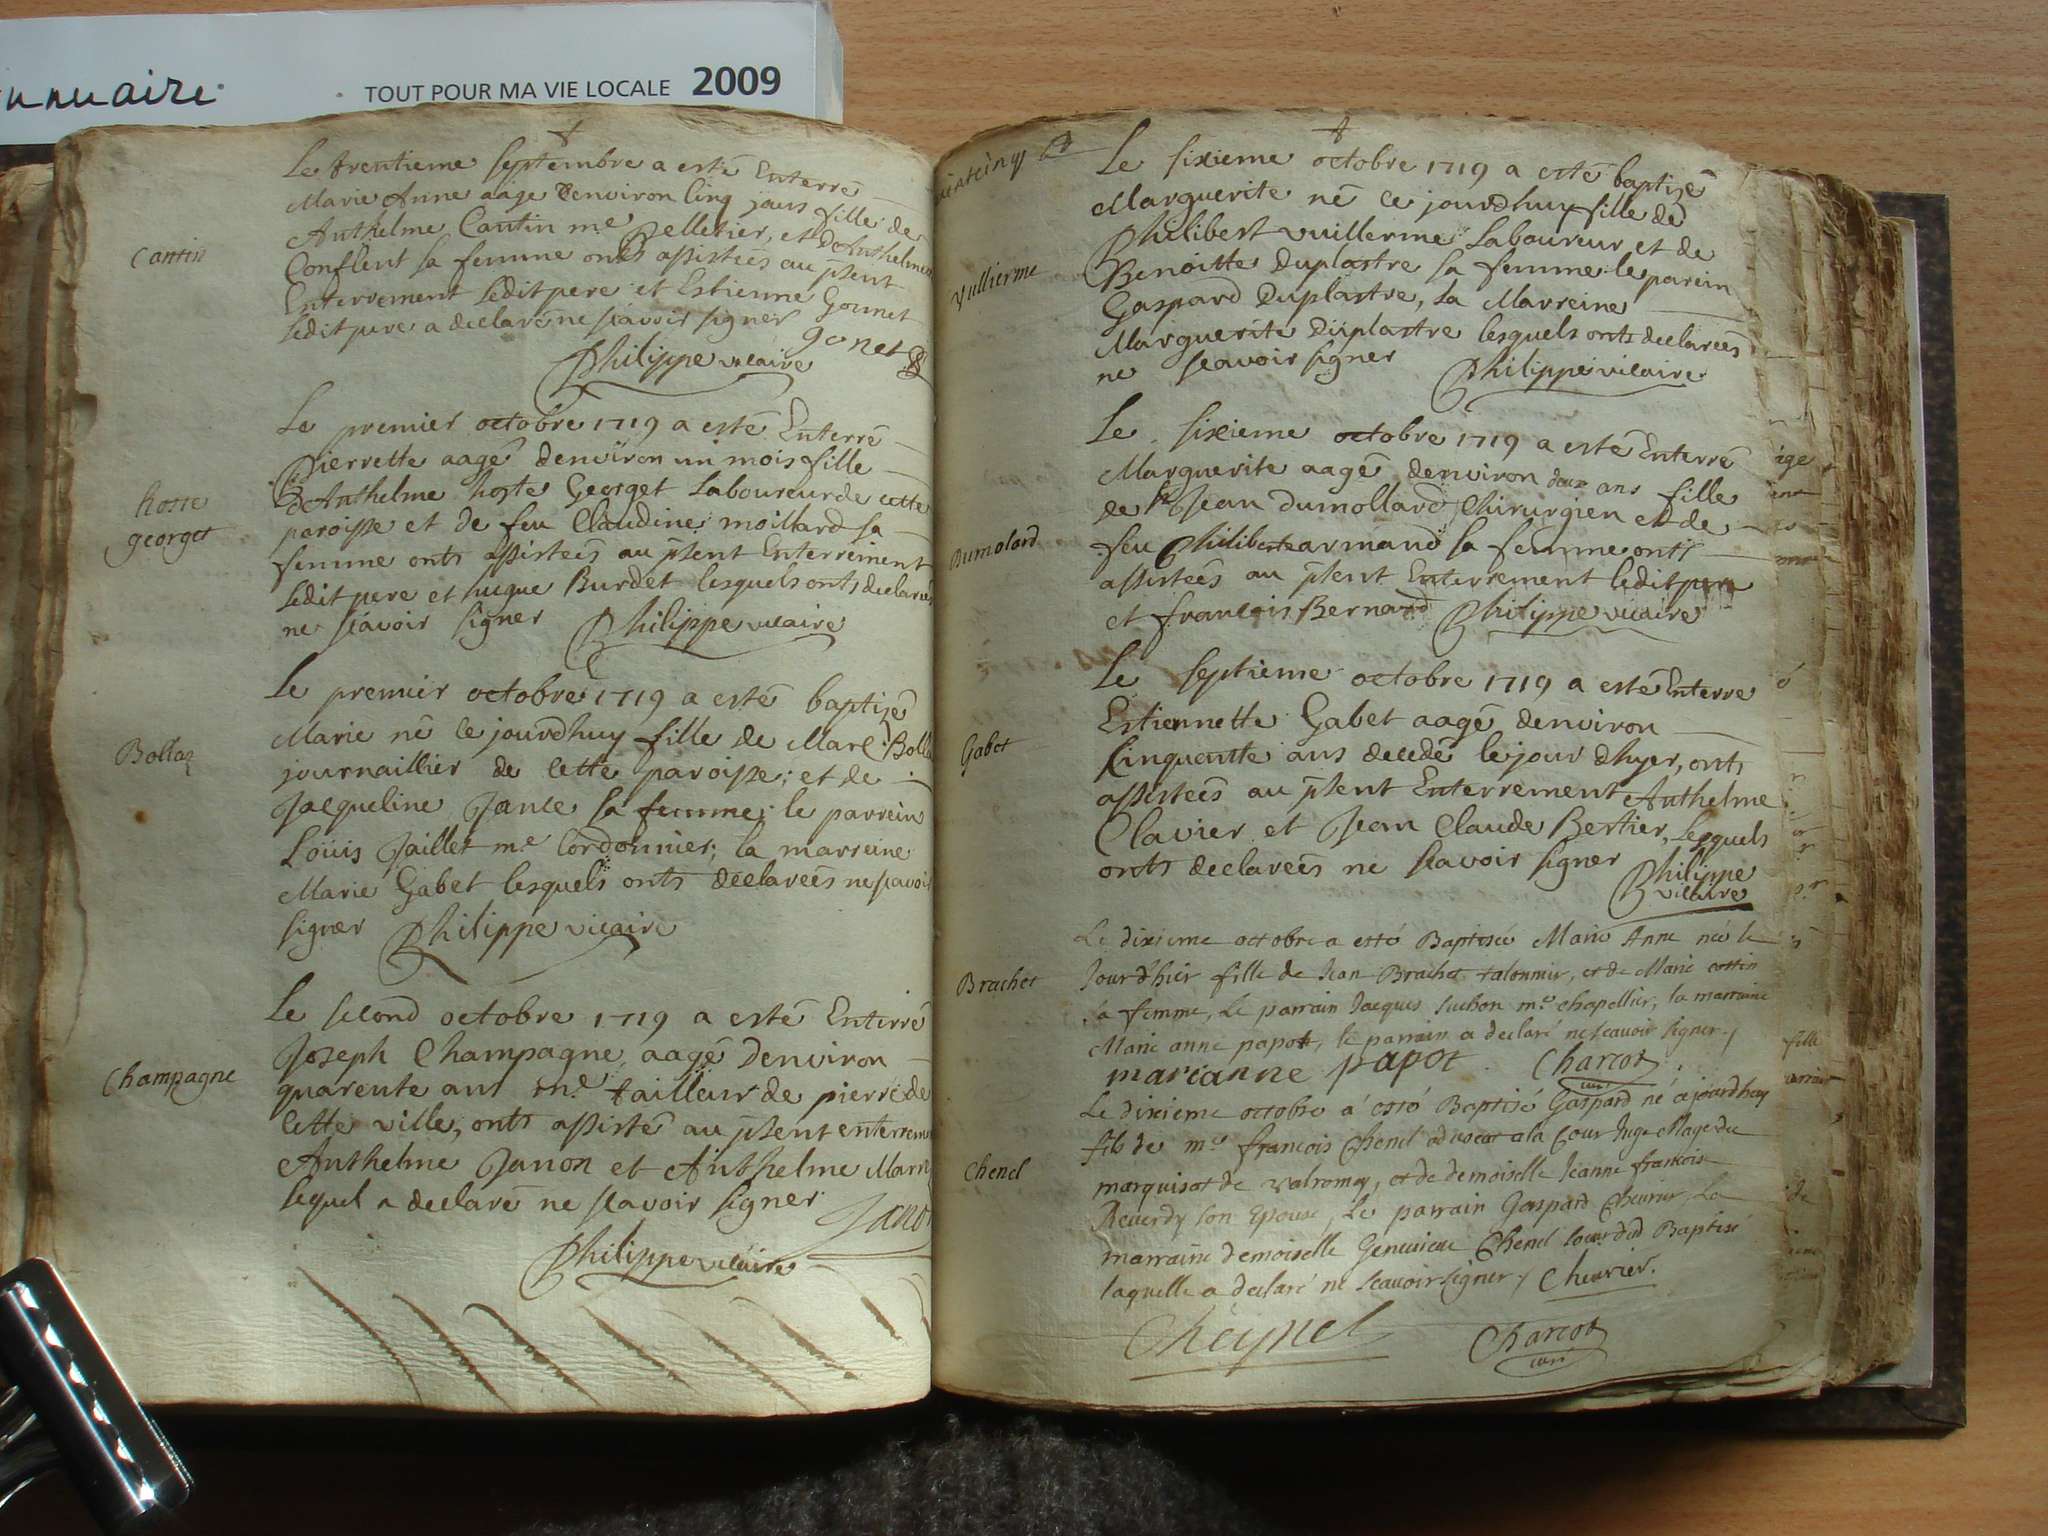 TOUT POUR MA VIE LOCALE 2009
Le trentieme septembre a esté Enterré
Marie Anne aagé denviron cinq jours fille de
Anthelme Cantin me pelletier, et d'Anthelme
Conflent sa femme onts assistées au pñent
Enterrement ledit pere et Estienne Gonnet
ledit pere a declaré ne scavoir signer
gonet
Philippe vicaire
Cantin
Le premier octobre 1719 a esté Enterré
Pierrette aagé denviron un mois fille
d'Anthelme hoste Georget Laboureur de cette
paroisse et de feu Claudine moillard sa
femme onts assistées au pñent Enterrement
ledit pere et hugue Burdet lesquels onts declarés
ne scavoir signer Philippe vicaire
hoste
georget
Le premier octobre 1719 a esté baptizé
Marie né ce jourdhuy fille de Marc Bolla
journaillier de cette paroisse; et de
Jacqueline Jance sa femme; le parrein
Loüis Jaillet me Cordonnier; la marreine
Marie Gabet lesquels onts declareés ne scavoir
signer Philippe vicaire
Bollaz
Le second octobre 1719 a esté Enterré
Joseph Champagne aagé denviron
quarente ans me tailleur de pierre de
cette ville, onts assisté au pñent enterrem
Anthelme Janon et Anthelme Marn
lequel a declaré ne scavoir signer
Jano
Philippe vicaire
Champagne
Le sixieme octobre 1719 a esté baptizé
Marguerite né ce jourdhuy fille de
Philibert vuillerme Laboureur et de
Benoitte Duplastre sa femme le parein
Gaspard Duplastre, la Marreine
Marguerite Duplastre lesquels onts declareés
ne scavoir signer Philippe vicaire
Vullierme
Le sixieme octobre 1719 a esté Enterré
Marguerite aagé denviron deux ans fille
de sr Jean Dumollard Chirurgien et de
feu Philiberte armand sa femme onts
assisteés au pñent Enterrement ledit pere
et francois Bernard Philippe vicaire
Dumolard
Le septieme octobre 1719 a esté Enterre
Estiennette Gabet aagé denviron
Cinquante ans decedé le jour dhyer, onts
assisteés au pñent Enterrement Anthelme
Clavier et Jean Claude Bertier, Lesquels
onts declareés ne scavoir signer Philippe
vicaire
Gabet
Le dixieme octobre a esté Baptisée Marie Anne née le
Jour d'hier fille de Jean Brachet talonnier, et de Marie cottin
sa femme, Le parrain Jacques suchon me chapellier, la marraine
Marie anne papot, le parrain a declaré ne scavoir signer /
marianne papot Charcot
curé
Brachet
Le dixieme octobre a esté Baptisé Gaspard né ajourdhuy
fils de me francois Chenel advocat a la Cour Juge Mage du
marquisat de valromey, et de demoiselle Jeanne francoise
Reverdy son Epouse, Le parrain Gaspard Chevrier, La
marraine demoiselle Genevieve Chenel soeur dud Baptisé
laquelle a declaré ne scavoir signer / Chevrier.
Cheynel Charcot
curé
Chenel